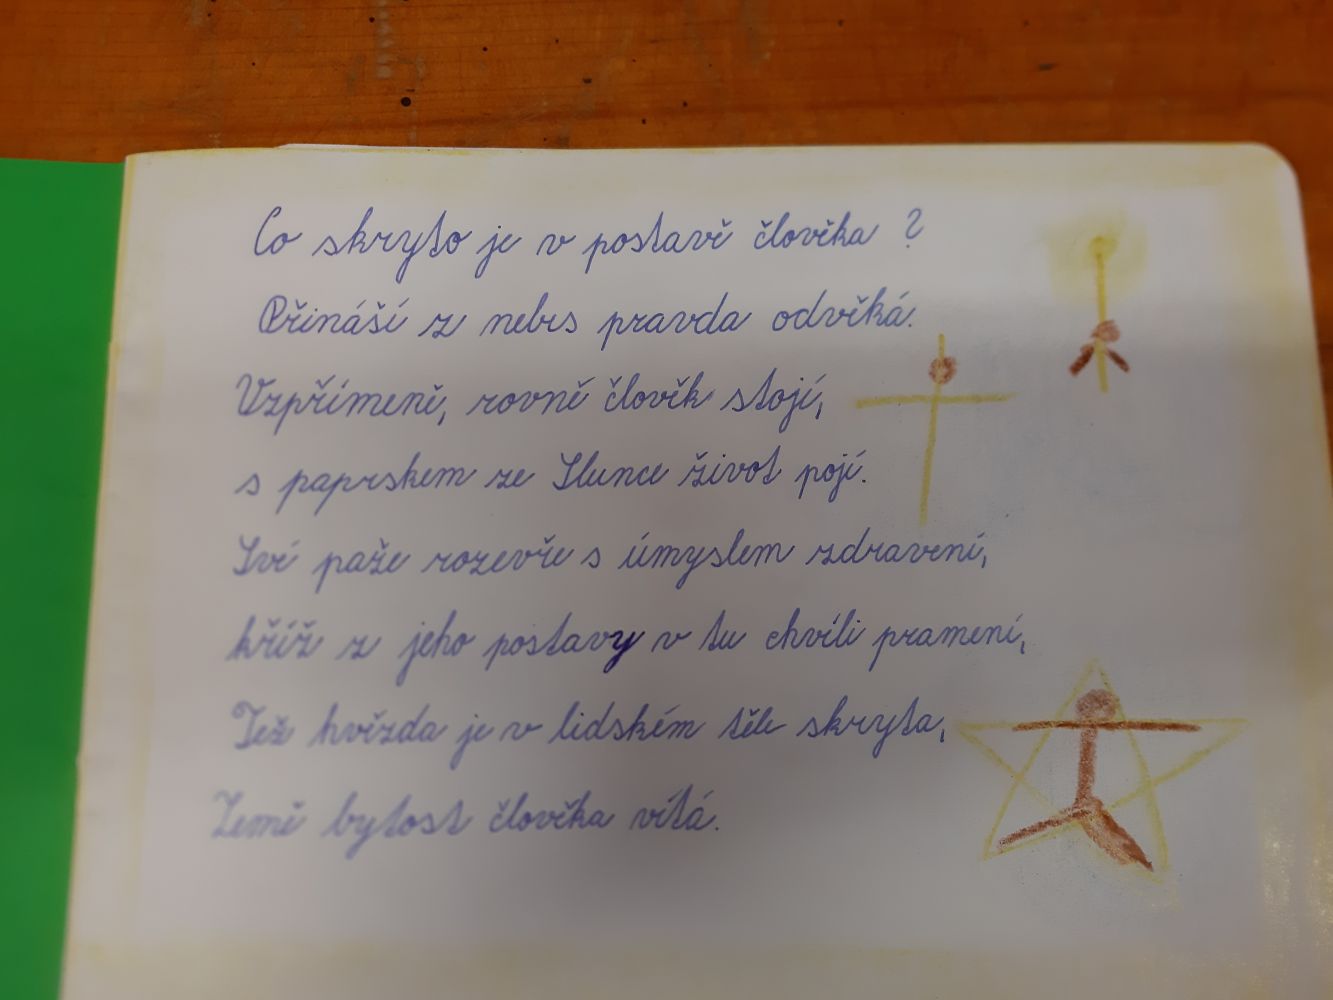 Co skryto je v postavě člověka ?
Přináší z nebes pravda odvěká.
Vzpřímeně, rovně člověk stojí,
s paprskem ze Slunce život pojí.
Své paže rozevře s úmyslem zdravení,
kříž z jeho postavy v tu chvíli pramení,
Též hvězda je v lidském těle skryta,
Země bytost člověka vítá.